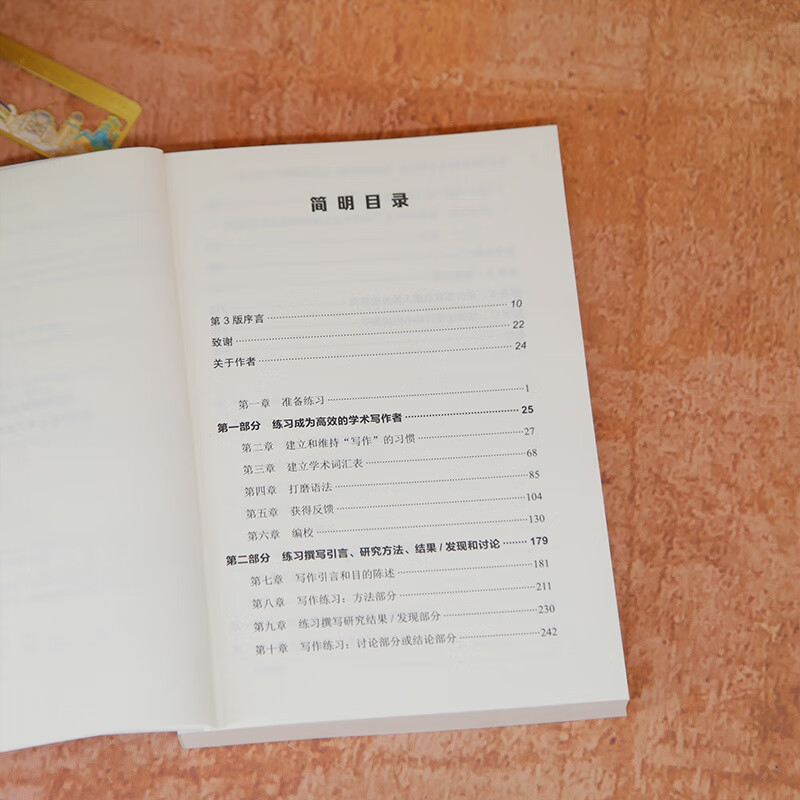 简明目录
第3版序言 10
致谢 22
关于作者 24
第一章 准备练习 1
第一部分 练习成为高效的学术写作者 25
第二章 建立和维持“写作”的习惯 27
第三章 建立学术词汇表 68
第四章 打磨语法 85
第五章 获得反馈 104
第六章 编校 130
第二部分 练习撰写引言、研究方法、结果/发现和讨论 179
第七章 写作引言和目的陈述 181
第八章 写作练习：方法部分 211
第九章 练习撰写研究结果/发现部分 230
第十章 写作练习：讨论部分或结论部分 242